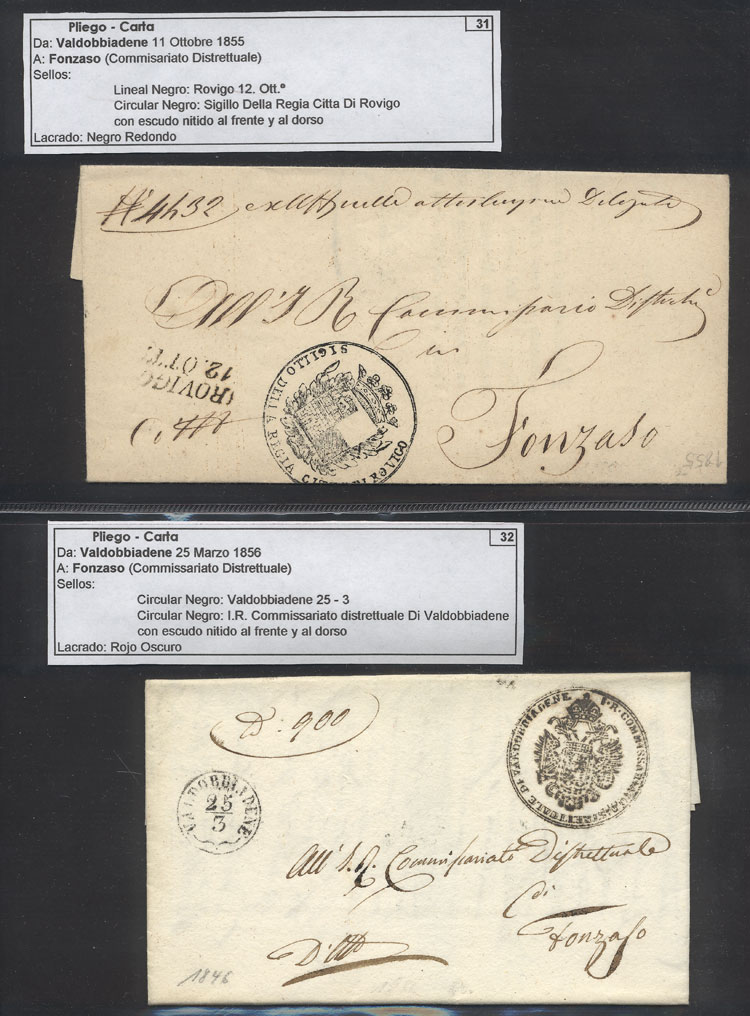 Pliego - Carta
31
Da: Valdobbiadene 11 Ottobre 1855
A: Fonzaso (Commisariato Distrettuale)
Sellos:
Lineal Negro: Rovigo 12. Ott.e
Circular Negro: Sigillo Della Regia Citta Di Rovigo
con escudo nitido al frente y al dorso
Lacrado: Negro Redondo
N° 4432
Delegate
All' I R Commissario Distret
in
Fonzaso
ROVIGO
12. OTT.
SIGILLO DELLA REGIA CITTA DI ROVIGO
1855
Pliego - Carta
32
Da: Valdobbiadene 25 Marzo 1856
A: Fonzaso (Commissariato Distrettuale)
Sellos:
Circular Negro: Valdobbiadene 25 - 3
Circular Negro: I.R. Commissariato distrettuale Di Valdobbiadene
con escudo nitido al frente y al dorso
Lacrado: Rojo Oscuro
D: 900
I. R. COMMISSARIATO DISTRETTUALE DI VALDOBBIADENE
VALDOBBIADENE
25
3
All' I. R. Commissariato Distrettuale
di
Fonzaso
1846